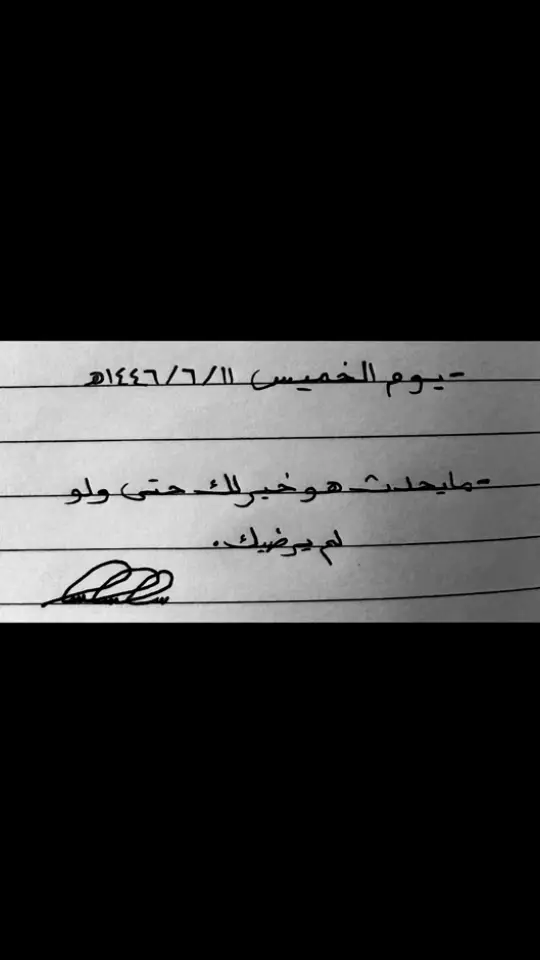 -يوم الخميس ١٤٤٦/٦/١١هـ
-مايحدث هو خير لك حتى ولو
لم يرضيك.